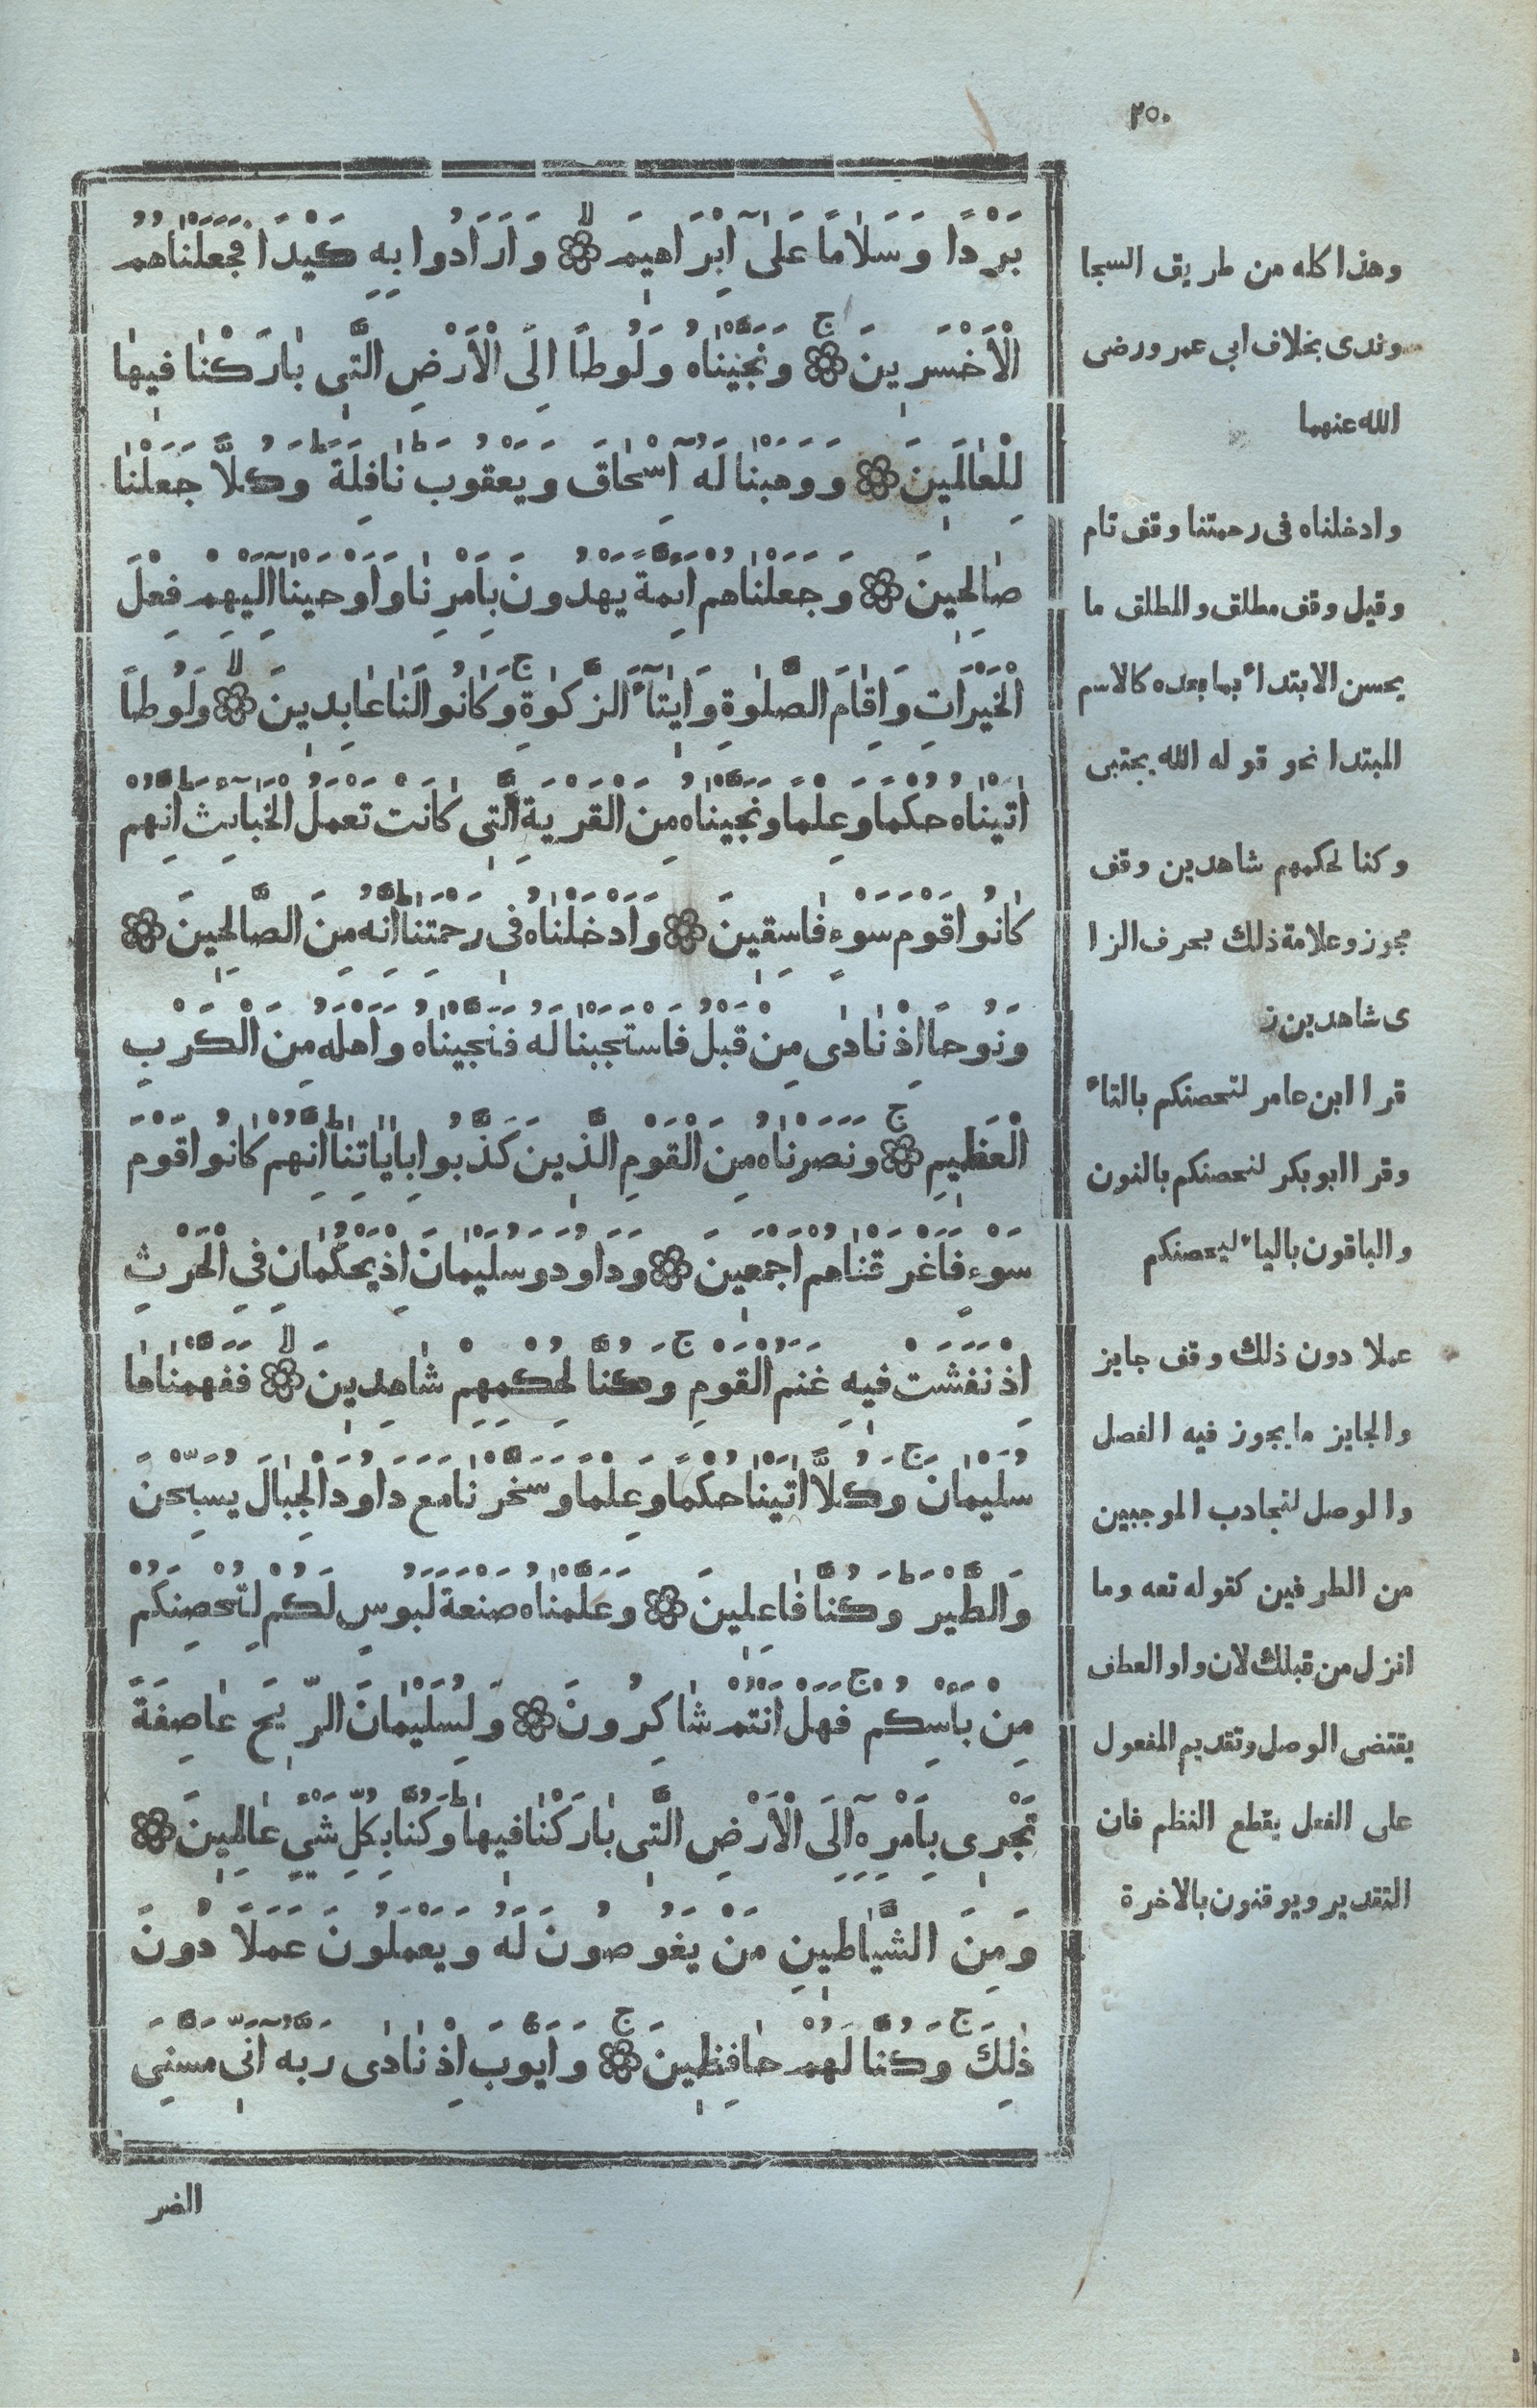 ٢٥٠
بَرْدًا وَسَلَامًا عَلَىٰٓ اِبْرَاهٖيمَ ۙ وَاَرَادُوا بِهِ كَيْدًا فَجَعَلْنَاهُمُ
الْاَخْسَرٖينَ ج وَنَجَّيْنَاهُ وَلُوطًا اِلَى الْاَرْضِ الَّتٖى بَارَكْنَا فٖيهَا
لِلْعَالَمٖينَ وَوَهَبْنَا لَهُٓ اِسْحَاقَ وَيَعْقُوبَ ط نَافِلَةً ط وَكُلًّا جَعَلْنَا
صَالِحٖينَ وَجَعَلْنَاهُمْ اَئِمَّةً يَهْدُونَ بِاَمْرِنَا وَاَوْحَيْنَآ اِلَيْهِمْ فِعْلَ
الْخَيْرَاتِ وَاِقَامَ الصَّلٰوةِ وَاٖيتَآءَ الزَّكٰوةِ ج وَكَانُوا لَنَا عَابِدٖينَ ۙ وَلُوطًا
اٰتَيْنَاهُ حُكْمًا وَعِلْمًا وَنَجَّيْنَاهُ مِنَ الْقَرْيَةِ الَّتٖى كَانَتْ تَعْمَلُ الْخَبَآئِثَ ط اِنَّهُمْ
كَانُوا قَوْمَ سَوْءٍ فَاسِقٖينَ وَاَدْخَلْنَاهُ فٖى رَحْمَتِنَا ط اِنَّهُ مِنَ الصَّالِحٖينَ
وَنُوحًا اِذْ نَادَى مِنْ قَبْلُ فَاسْتَجَبْنَا لَهُ فَنَجَّيْنَاهُ وَاَهْلَهُ مِنَ الْكَرْبِ
الْعَظٖيمِ ج وَنَصَرْنَاهُ مِنَ الْقَوْمِ الَّذٖينَ كَذَّبُوا بِاٰيَاتِنَا ط اِنَّهُمْ كَانُوا قَوْمَ
سَوْءٍ فَاَغْرَقْنَاهُمْ اَجْمَعٖينَ وَدَاوُدَ وَسُلَيْمَانَ اِذْ يَحْكُمَانِ فِي الْحَرْثِ
اِذْ نَفَشَتْ فٖيهِ غَنَمُ الْقَوْمِ ج وَكُنَّا لِحُكْمِهِمْ شَاهِدٖينَ ۙ فَفَهَّمْنَاهَا
سُلَيْمَانَ ج وَكُلًّا اٰتَيْنَا حُكْمًا وَعِلْمًا وَسَخَّرْنَا مَعَ دَاوُدَ الْجِبَالَ يُسَبِّحْنَ
وَالطَّيْرَ ط وَكُنَّا فَاعِلٖينَ وَعَلَّمْنَاهُ صَنْعَةَ لَبُوسٍ لَكُمْ لِتُحْصِنَكُمْ
مِنْ بَأْسِكُمْ ج فَهَلْ اَنْتُمْ شَاكِرُونَ وَلِسُلَيْمَانَ الرّٖيحَ عَاصِفَةً
تَجْرٖى بِاَمْرِهِٓ اِلَى الْاَرْضِ الَّتٖى بَارَكْنَا فٖيهَا ط وَكُنَّا بِكُلِّ شَيْءٍ عَالِمٖينَ
وَمِنَ الشَّيَاطٖينِ مَنْ يَغُوصُونَ لَهُ وَيَعْمَلُونَ عَمَلًا دُونَ
ذٰلِكَ ج وَكُنَّا لَهُمْ حَافِظٖينَ ج وَاَيُّوبَ اِذْ نَادَى رَبَّهُٓ اَنّٖى مَسَّنِيَ
الضر
وهذا كله من طريق السجا
وندى بخلاف ابى عمرو رضى
الله عنهما
وادخلناه فى رحمتنا وقف تام
وقيل وقف مطلق والمطلق ما
يحسن الابتداء بما بعده كالاسم
المبتدا نحو قوله الله يجتبى
وكنا لحكمهم شاهدين وقف
مجوز وعلامة ذلك بحرف الزا
ى شاهدين ز
قرا ابن عامر لتحصنكم بالتاء
وقرا ابو بكر لنحصنكم بالنون
والباقون بالياء ليحصنكم
عملا دون ذلك وقف جايز
والجايز ما يجوز فيه الفصل
والوصل لتجادب الموجبين
من الطرفين كقوله تعه وما
انزل من قبلك لان واو العطف
يقتضى الوصل وتقديم المفعول
على الفعل يقطع النظم فان
التقدير ويوقنون بالاخرة